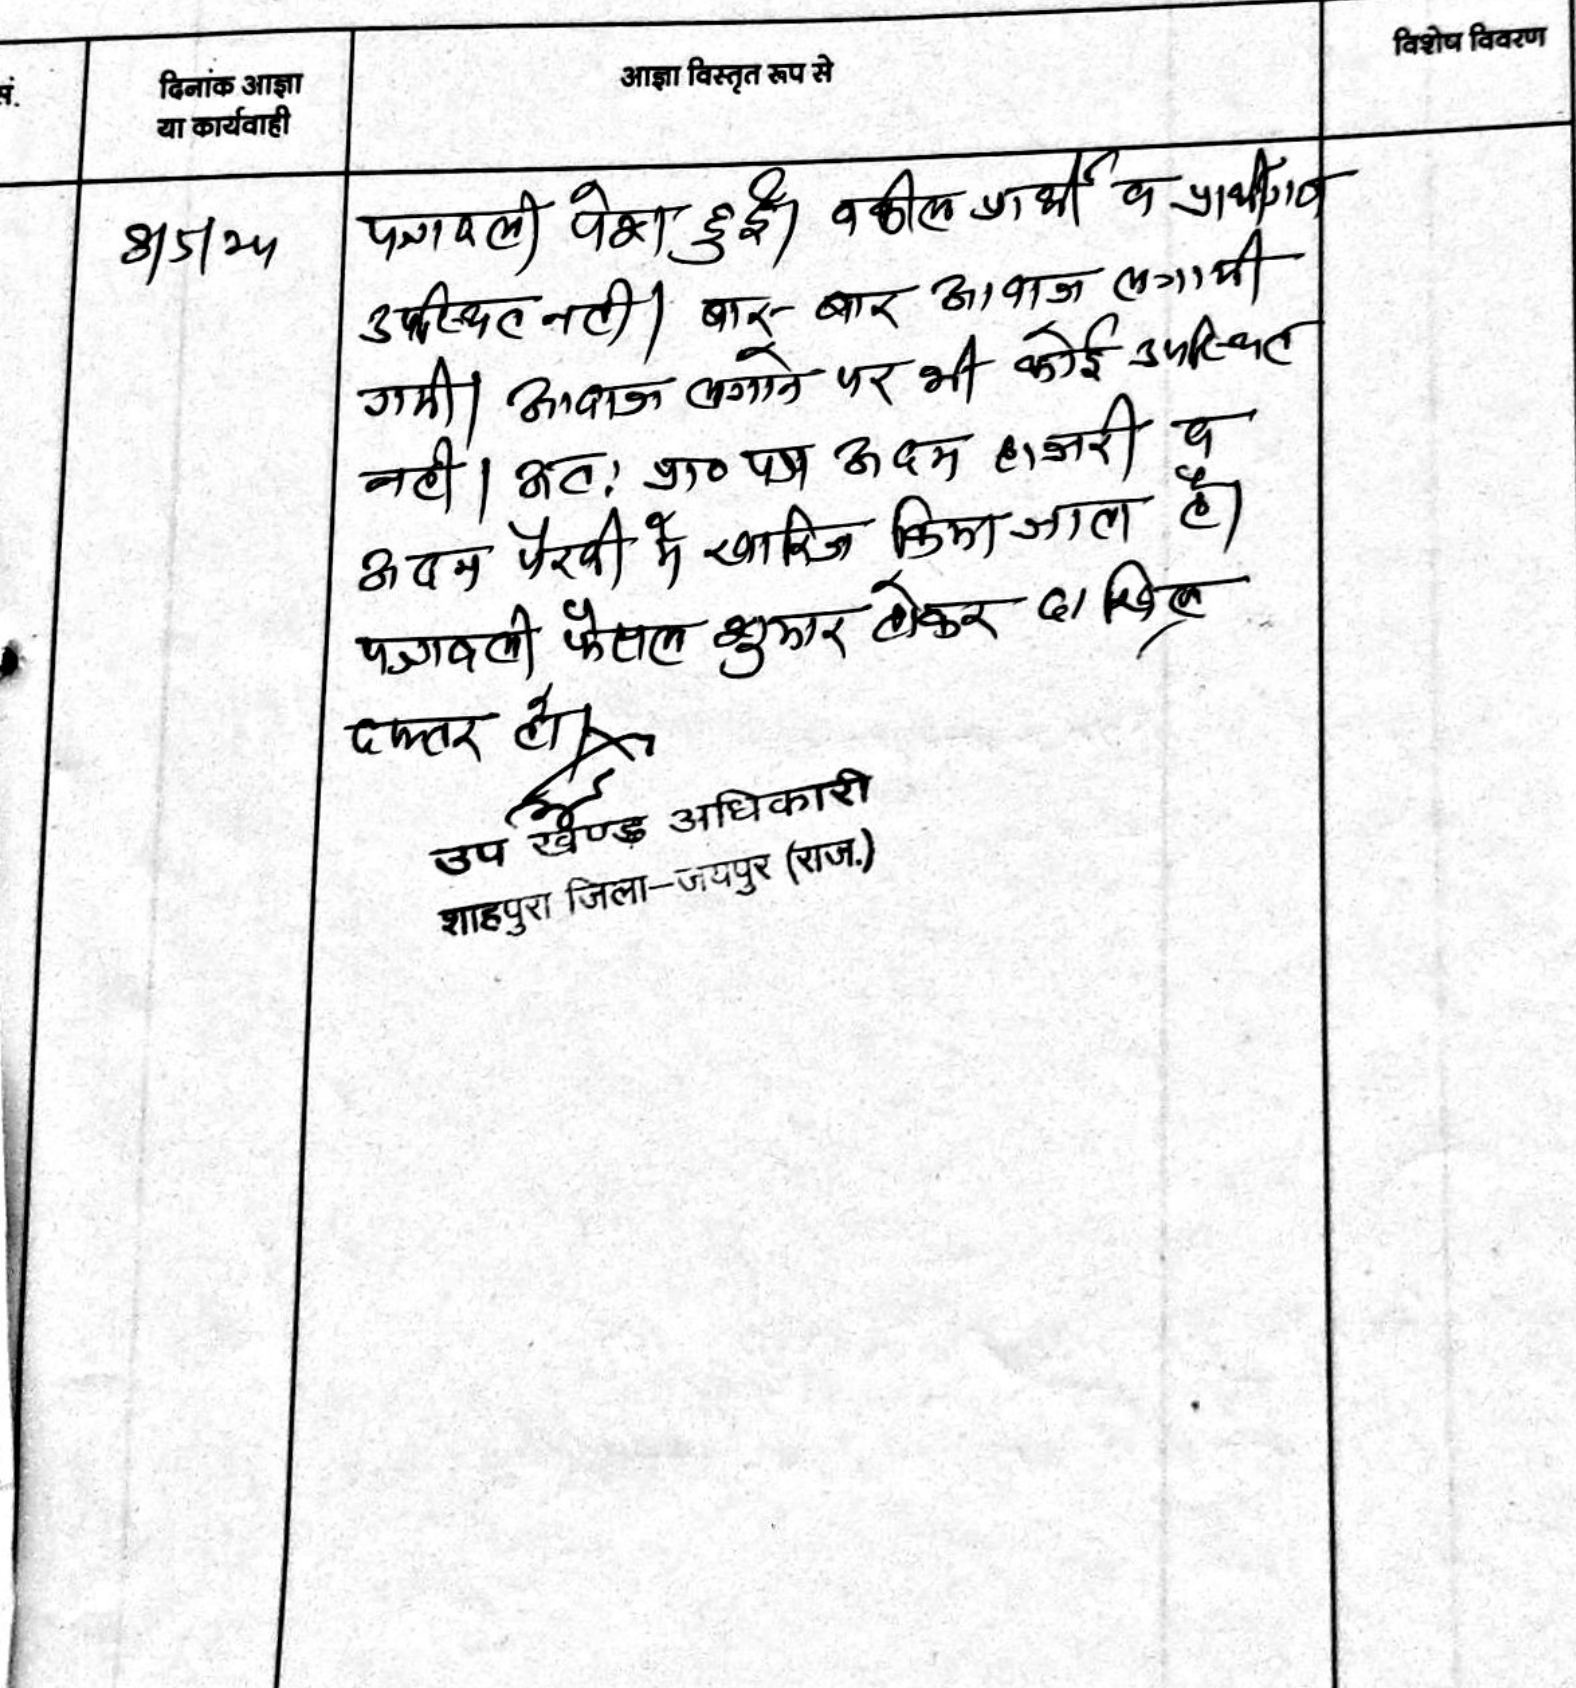 सं.
दिनांक आज्ञा
या कार्यवाही
आज्ञा विस्तृत रूप से
विशेष विवरण
8/5/24
पत्रावली पेश हुई। वकील प्रार्थी व प्रार्थीगण
उपस्थित नही। बार-बार आवाज लगायी
गयी। आवाज लगाने पर भी कोई उपस्थित
नही। अतः प्रा० पत्र अदम हाजरी व
अदम पैरवी मे खारिज किया जाता है।
पत्रावली फैसल शुमार होकर दाखिल
दफ्तर हो।
उप खण्ड अधिकारी
शाहपुरा जिला-जयपुर (राज.)